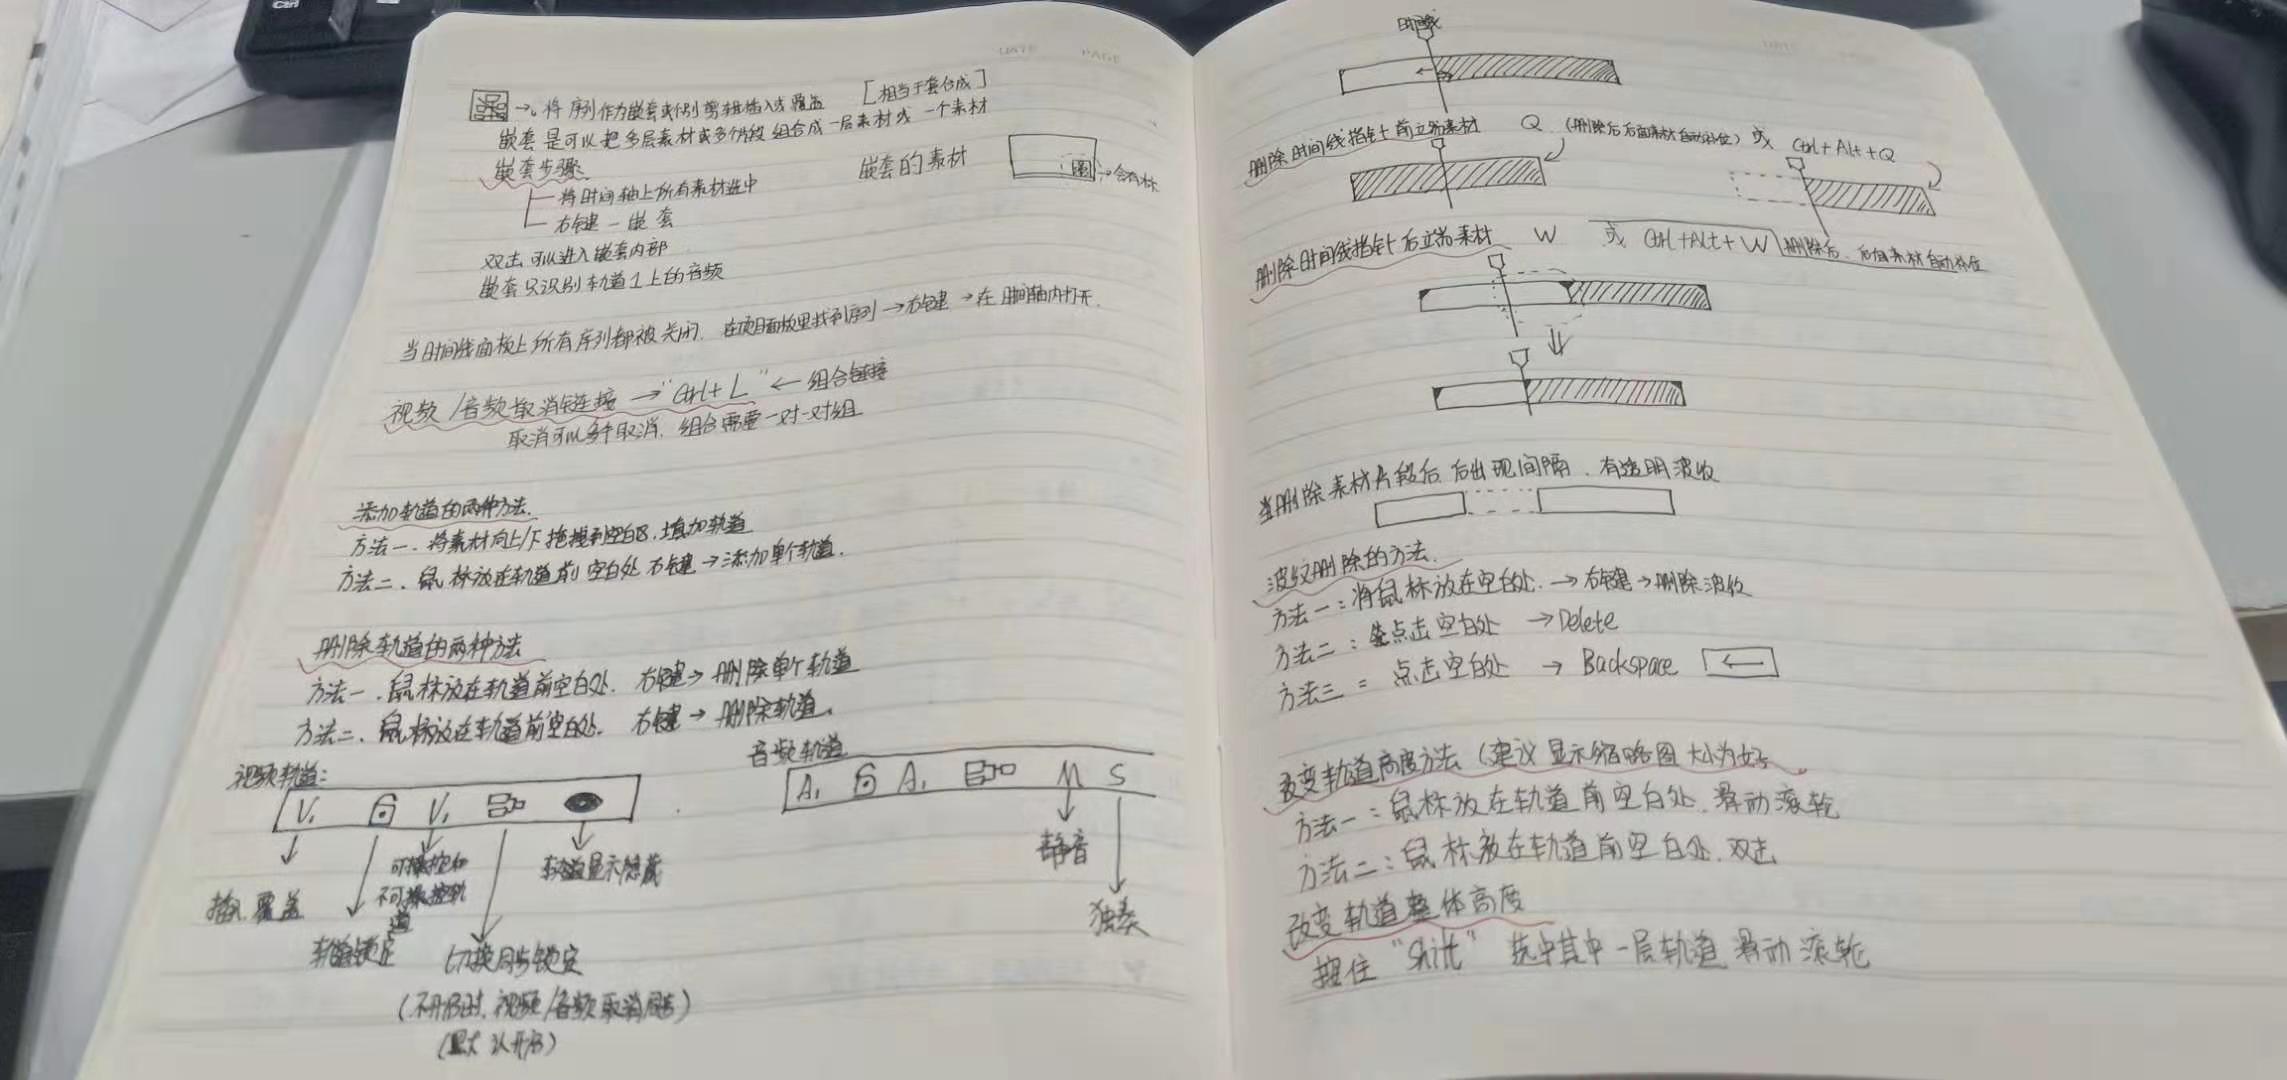 Ctrl
DATE PAGE
→。将序列作为嵌套或个别剪辑插入或覆盖 [相当于套合成]
嵌套是可以把多层素材或多个片段组合成一层素材或一个素材
嵌套步骤
将时间轴上所有素材选中
右键-嵌套
嵌套的素材
→含有标
双击可以进入嵌套内部
嵌套只识别轨道1上的音频
当时间线面板上所有序列都被关闭.在项目面板里找到序列→右键→在时间轴内打开.
视频/音频取消链接→"Ctrl+L"←组合链接
取消可以多个取消.组合需要一对一对组
添加轨道的两种方法.
方法一.将素材向上/下拖拽到空白区.增加轨道
方法二.鼠标放在轨道前空白处右键→添加单个轨道.
删除轨道的两种方法
方法一.鼠标放在轨道前空白处.右键→删除单个轨道
方法二.鼠标放在轨道前空白处.右键→删除轨道.
视频轨道:
V₁ V₁
插入.覆盖
轨道锁定
可操控和
不可操控轨
道
切换同步锁定
(不开启时.视频/音频取消同步)
(默认开启)
轨道显示隐藏
音频轨道
A₁ A₁ M S
静音
独奏
DATE
时间线
删除时间线指针前立端素材 Q (删除后后面素材自动补位) 或 Ctrl+Alt+Q
删除时间线指针后立端素材 W 或 Ctrl+Alt+W 删除后.后面素材自动补位
当删除素材片段后后出现间隔.有透明波纹
波纹删除的方法.
方法一:将鼠标放在空白处.→右键→删除波纹
方法二:点击空白处→Delete
方法三= 点击空白处→Backspace ←
改变轨道高度方法(建议显示缩略图大小为好
方法一:鼠标放在轨道前空白处.滑动滚轮
方法二:鼠标放在轨道前空白处.双击
改变轨道整体高度
按住"Shift"选中其中一层轨道滑动滚轮